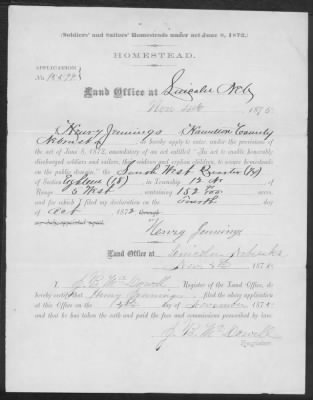 (Soldiers' and Sailors' Homesteads under act June 8, 1872.)
HOMESTEAD.
APPLICATION
No.
Land Office at Lincoln Neb
Nov 1875
I, Henry Jennings of Hamilton County
Nebraska do hereby apply under the provisions of
the act of June 8, 1872, amendatory of an act entitled "An act to enable honorably
discharged soldiers and sailors, their widows and orphan children, to secure homesteads
on the public domain," the South West Quarter
of Section Eighteen (18) in Township 12 N of
Range 5 West containing 152 acres,
and for which I filed my declaration on the Fourth day of
Oct 1872 through
my duly appointed agent
Henry Jennings
Land Office at Lincoln Nebraska
187
I, J. B. McDowell Register of the Land Office, do
hereby certify that Henry Jennings filed the above application
at this Office on the day of November 187
and that he has taken the oath and paid the fees and commissions prescribed by law.
J. B. McDowell
Register.